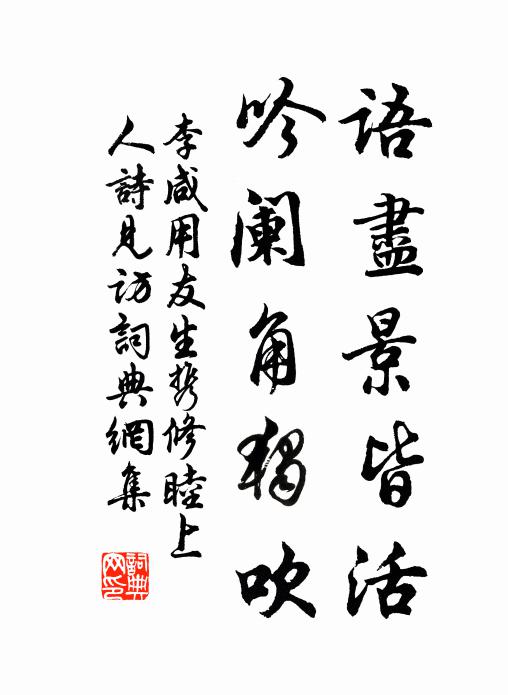 語盡景皆活
吟阑角獨吹
李咸用友生携修睦上
人詩見访詞典網集
詞典網印